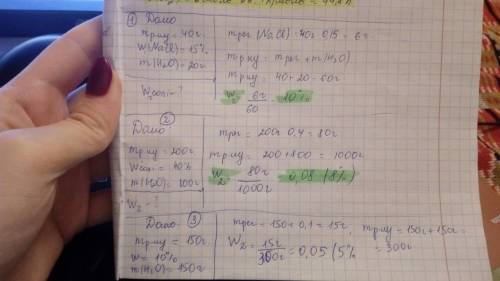 ① Дано
mр-му = 40г
W(NaCl) = 15%
m(H₂O) = 20г
Wсолі - ?
mреч (NaCl) = 40г · 0,15 = 6г
mр-му = mреч + m(H₂O)
mр-му = 40 + 20 = 60г
W₂ = 6г/60 = 10%
② Дано
mр-му = 200г
Wсолі = 40%
m(H₂O) = 800г
W₂ - ?
mреч = 200г · 0,4 = 80г
mр-му = 200 + 800 = 1000г
W₂ = 80г/1000г = 0,08 (8%)
Дано ③
mр-му = 150г
W = 10%
m(H₂O) = 150г
mреч = 150 · 0,1 = 15г, mр-му = 150г + 150г = 300г
W₂ = 15г/300г = 0,05 (5%